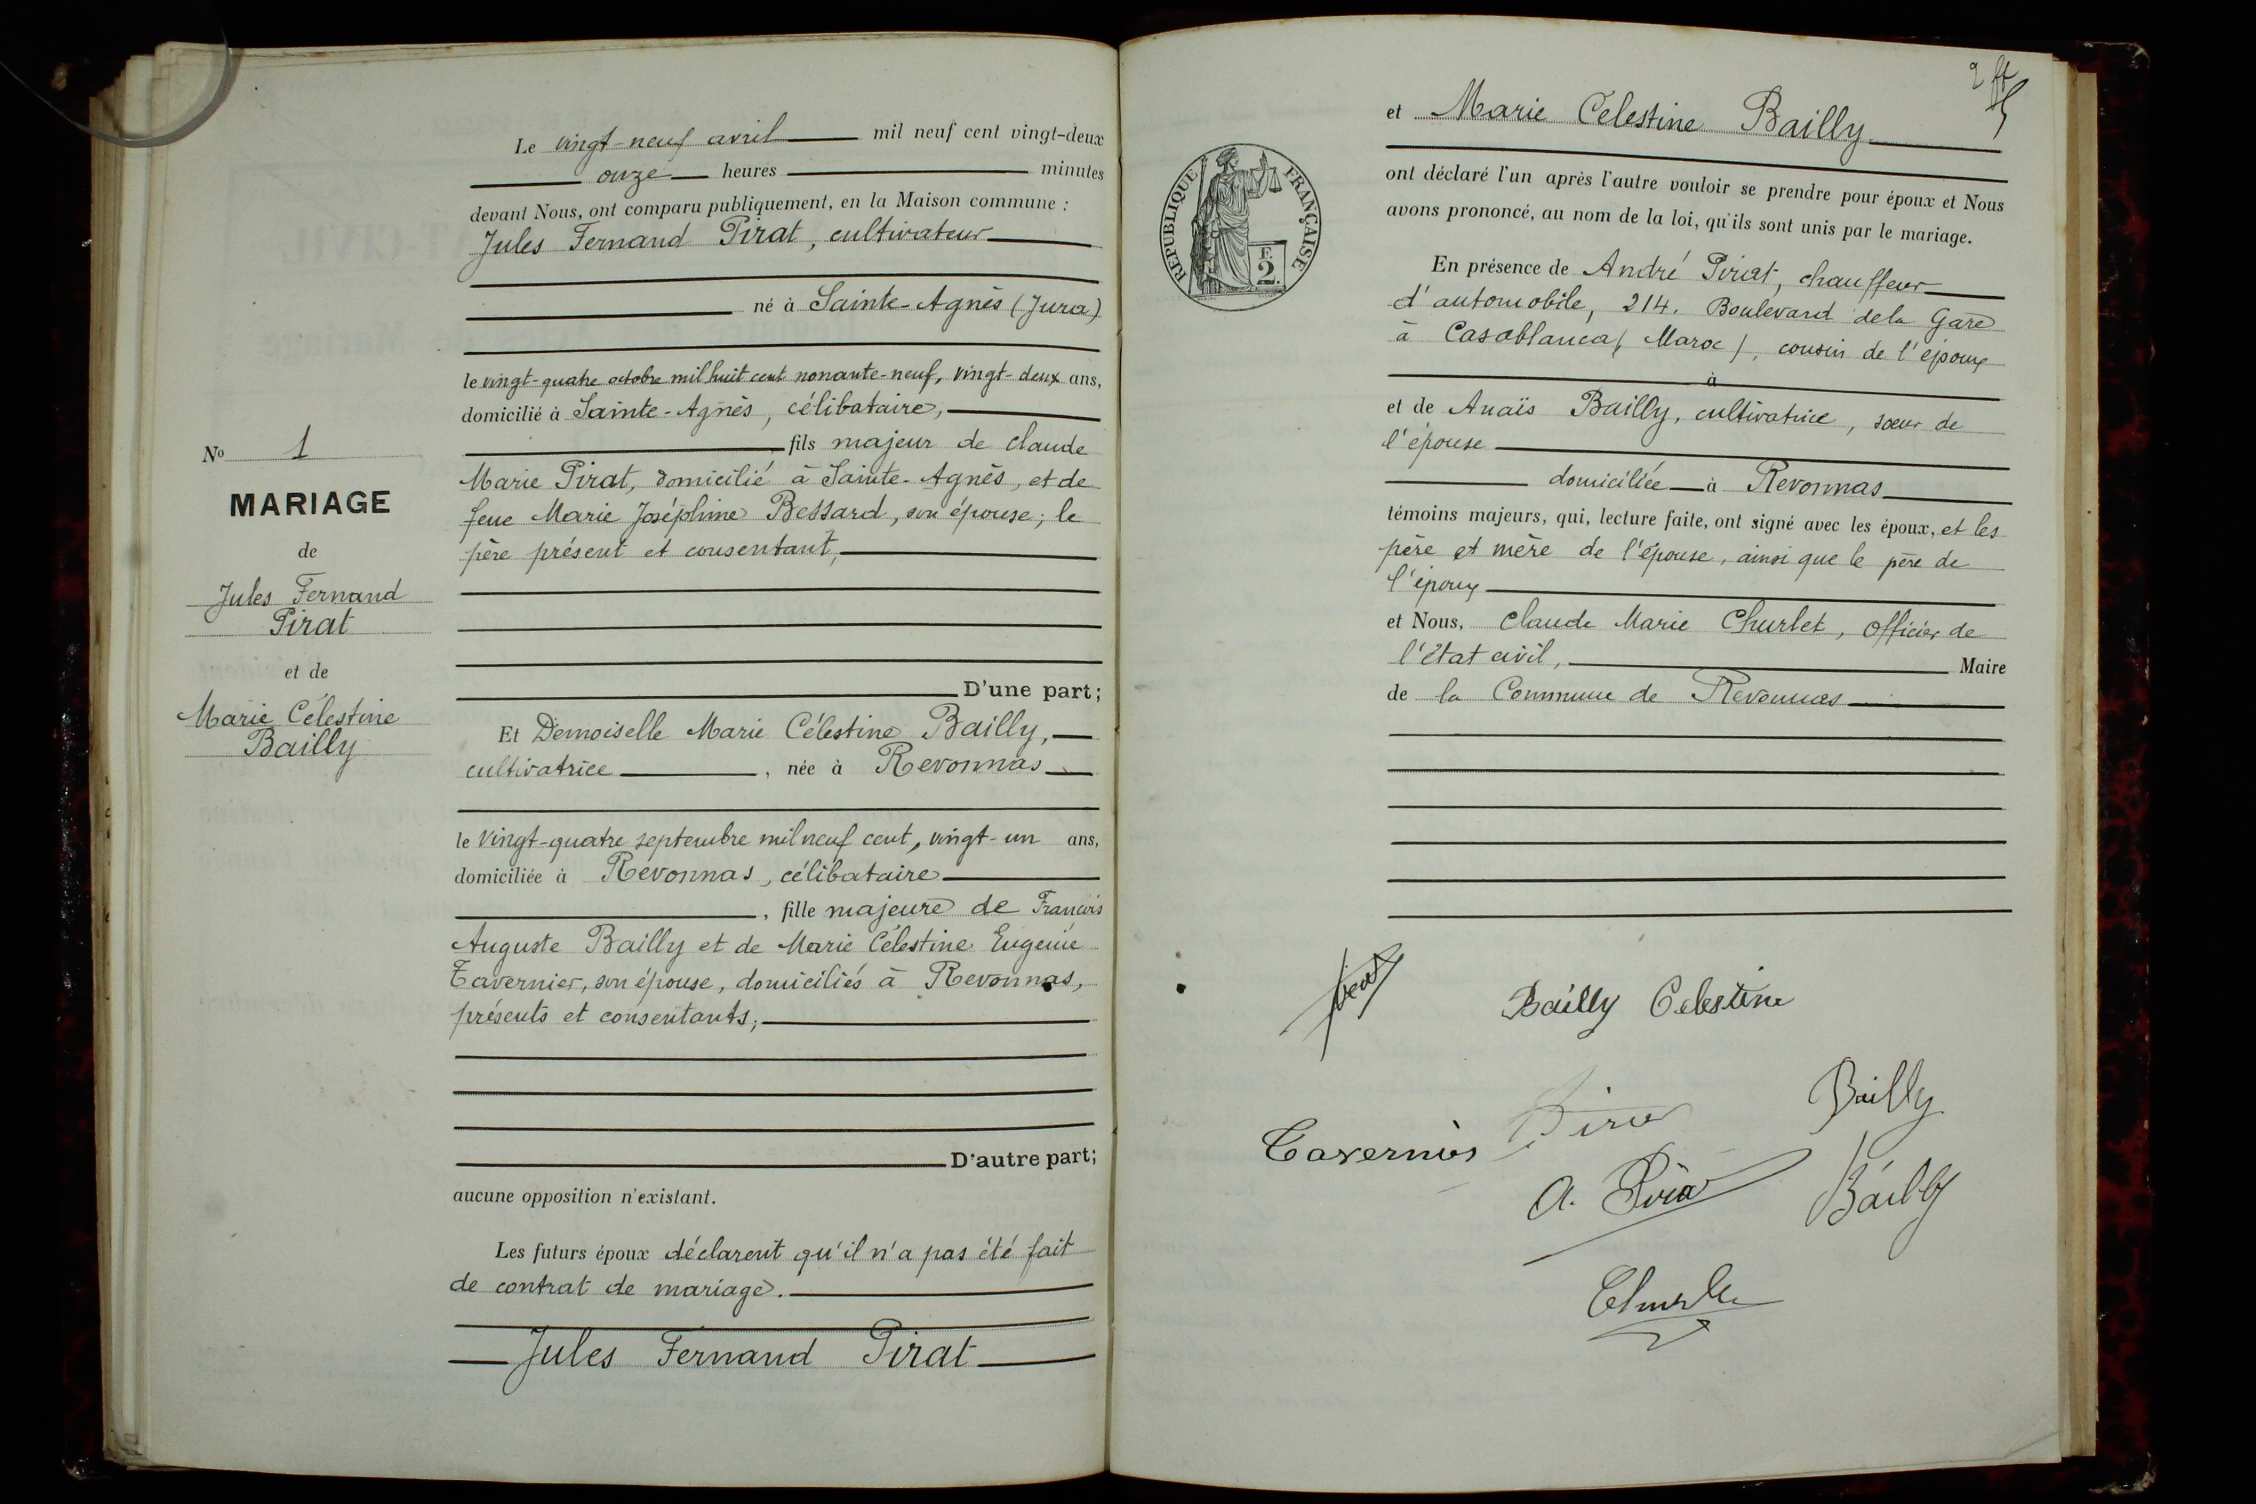 Le vingt-neuf avril mil neuf cent vingt-deux
onze heures minutes
devant Nous, ont comparu publiquement, en la Maison commune :
Jules Fernand Pirat, cultivateur
né à Sainte-Agnès (Jura)
le vingt-quatre octobre mil huit cent nonante-neuf, vingt-deux ans,
domicilié à Sainte-Agnès, célibataire,
fils majeur de Claude
Marie Pirat, domicilié à Sainte-Agnès, et de
feue Marie Joséphine Bessard, son épouse; le
père présent et consentant,
D'une part;
Et Demoiselle Marie Célestine Bailly,
cultivatrice, née à Revonnas
le vingt-quatre septembre mil neuf cent, vingt-un ans,
domiciliée à Revonnas, célibataire
, fille majeure de Francois
Auguste Bailly et de Marie Célestine Eugenie
Tavernier, son épouse, domiciliés à Revonnas,
présents et consentants;
D'autre part;
aucune opposition n'existant.
Les futurs époux déclarent qu'il n'a pas été fait
de contrat de mariage.
Jules Fernand Pirat
No 1
MARIAGE
de
Jules Fernand
Pirat
et de
Marie Célestine
Bailly
2
et Marie Celestine Bailly
ont déclaré l'un après l'autre vouloir se prendre pour époux et Nous
avons prononcé, au nom de la loi, qu'ils sont unis par le mariage.
RÉPUBLIQUE FRANÇAISE
F.
2.
En présence de André Pirat, chauffeur
d'automobile, 214. Boulevard de la Gare
à Casablanca (Maroc), cousin de l'époux
à
et de Anaïs Bailly, cultivatrice, sœur de
l'épouse
domiciliée à Revonnas
témoins majeurs, qui, lecture faite, ont signé avec les époux, et les
père et mère de l'épouse, ainsi que le père de
l'époux
et Nous, Claude Marie Churlet, Officier de
l'état civil, Maire
de la Commune de Revonnas
Bailly Celestine
Bailly
Tavernier
A. Pirat
Bailly